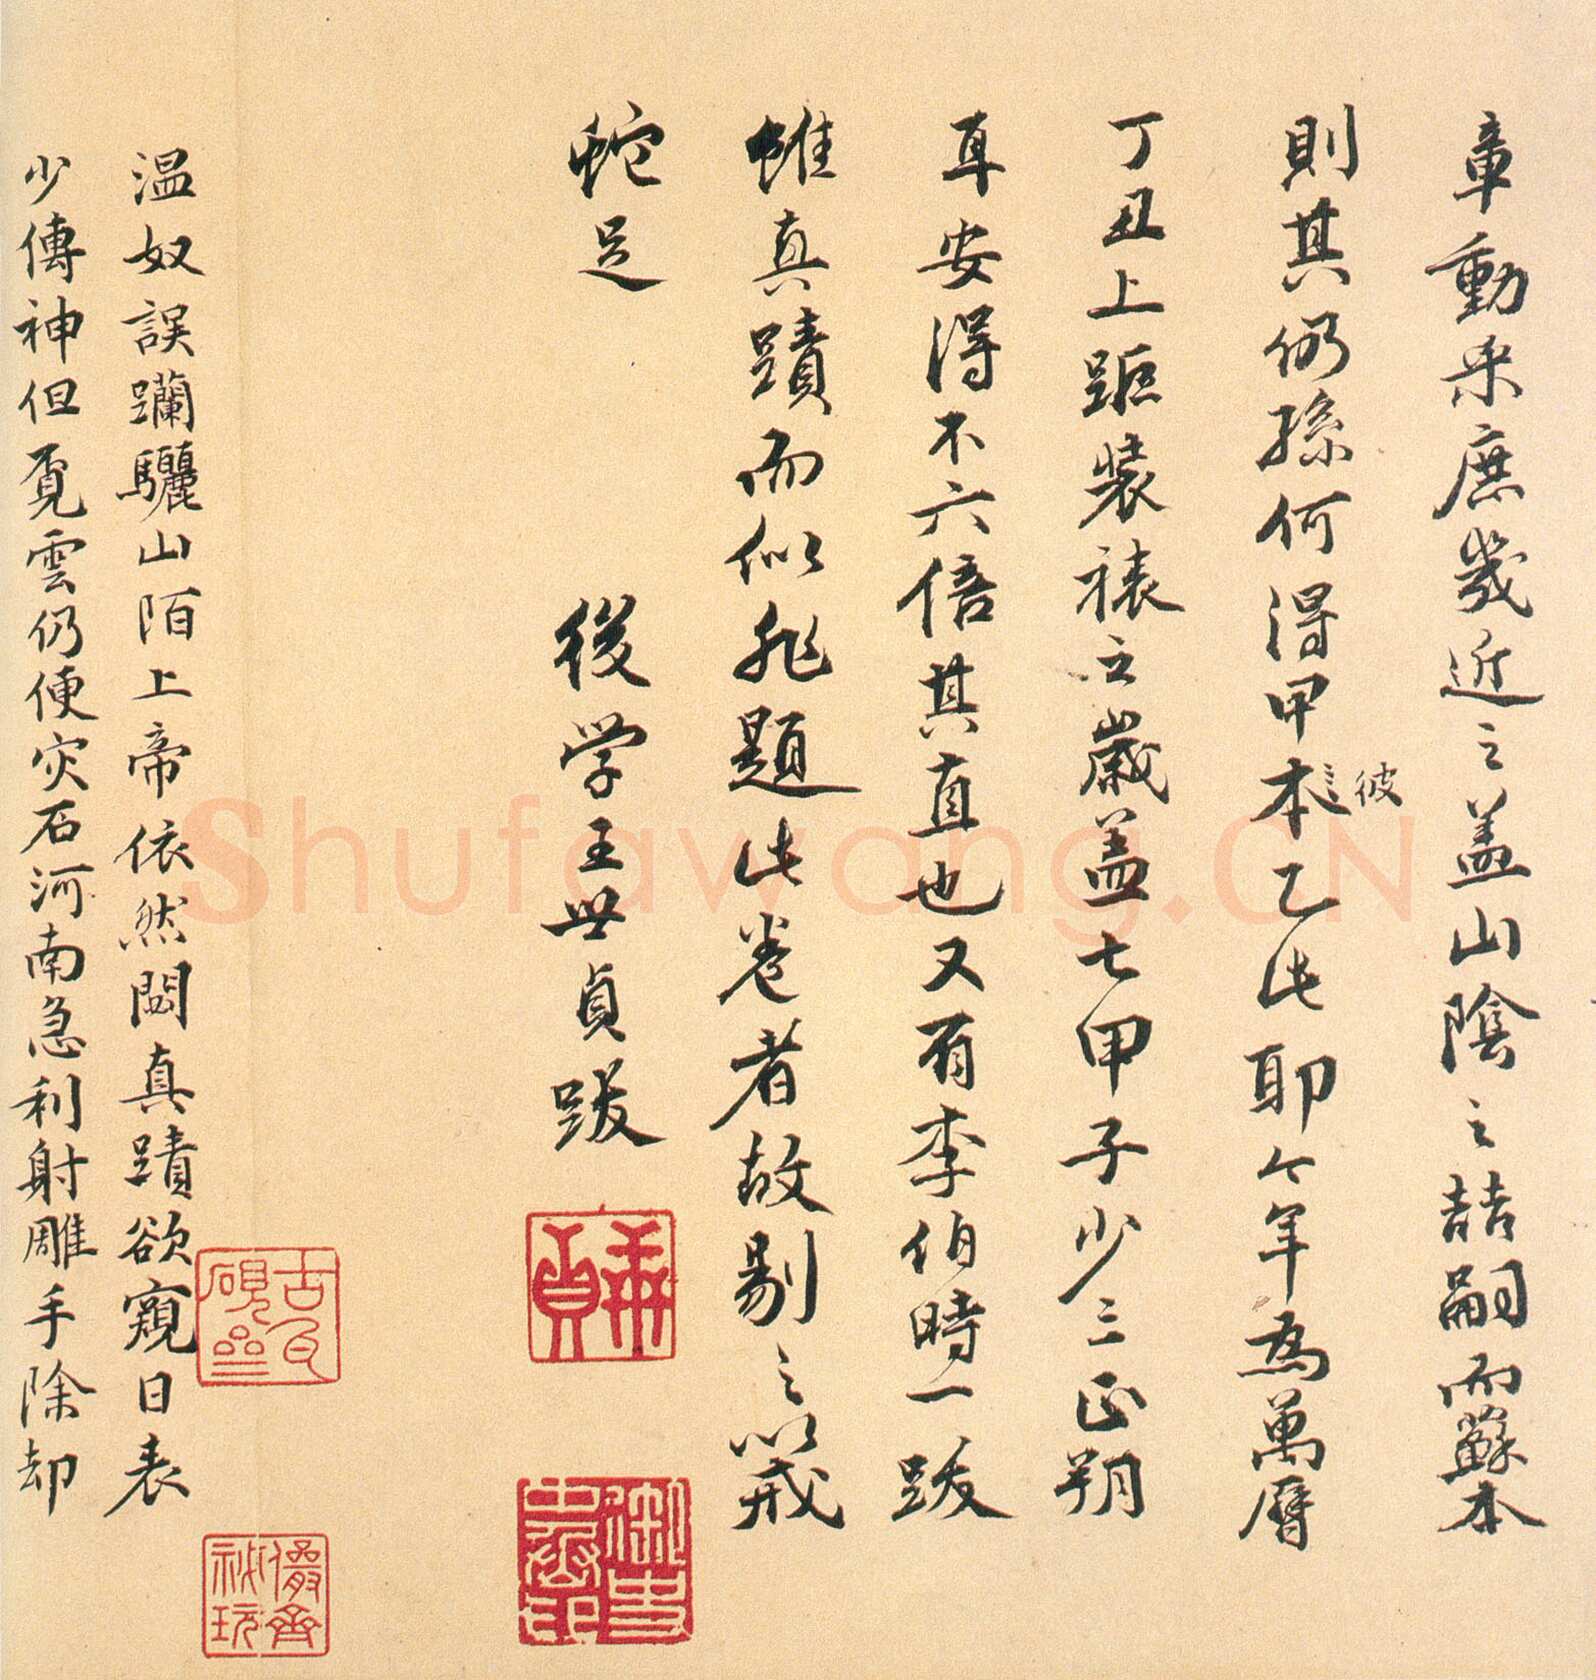 章動采庶幾近之盖山陰之喆嗣而蘇本
則其仍孫何得甲本乙此耶今年為萬曆
彼
丁丑上距装裱之歲盖七甲子少三正朔
耳安得不六倍其直也又有李伯時一跋
雖真蹟而似非題此卷者故剔之以戒
蛇足
後学王世貞跋
温奴誤躪驪山陌上帝依然閟真蹟欲窺日表
少傳神但覔雲仍便灾石河南急利射雕手除却
Shufawang.CN